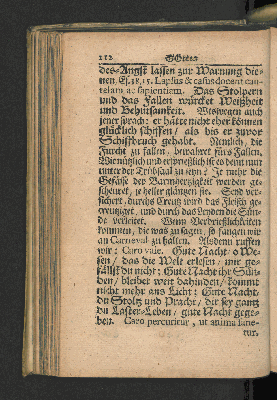 212 Göttes
des-Angst lassen zur Warnung die-
nen, Es. 38, 15. Lapsus & casus docent cau-
telam ac sapientiam. Das Stolpern
und das Fallen würcket Weißheit
und Behutsamkeit. Weswegen auch
jener sprach: er hätte nicht eher können
glücklich schiffen / als bis er zuvor
Schiffbruch gehabt. Nemlich, die
Furcht zu fallen, bewahret fürs Fallen.
Wie nützlich und ersprießlich ist es denn nun
unter der Trübsaal zu seyn? Je mehr die
Gefässe der Barmhertzigkeit werden ge-
scheuret, je heller gläntzen sie. Seyd ver-
sichert, durchs Creutz wird das Fleisch ge-
creutziget, und durch das Leyden die Sün-
de verleitet. Wenn Verdrießlichkeiten
kommen, die was zu sagen, so fangen wir
an Carneval zu halten. Alsdenn ruffen
wir: Caro vale. Gute Nacht / o We-
sen / das die Welt erlesen / mir ge-
fällst du nicht; Gute Nacht ihr Sün-
den / bleibet weit dahinden / kommt
nicht mehr ans Licht; Gute Nacht,
du Stoltz und Pracht / dir sey gantz
du Laster-Leben / gute Nacht gege-
ben. Caro percutitur, ut anima sane-
tur.